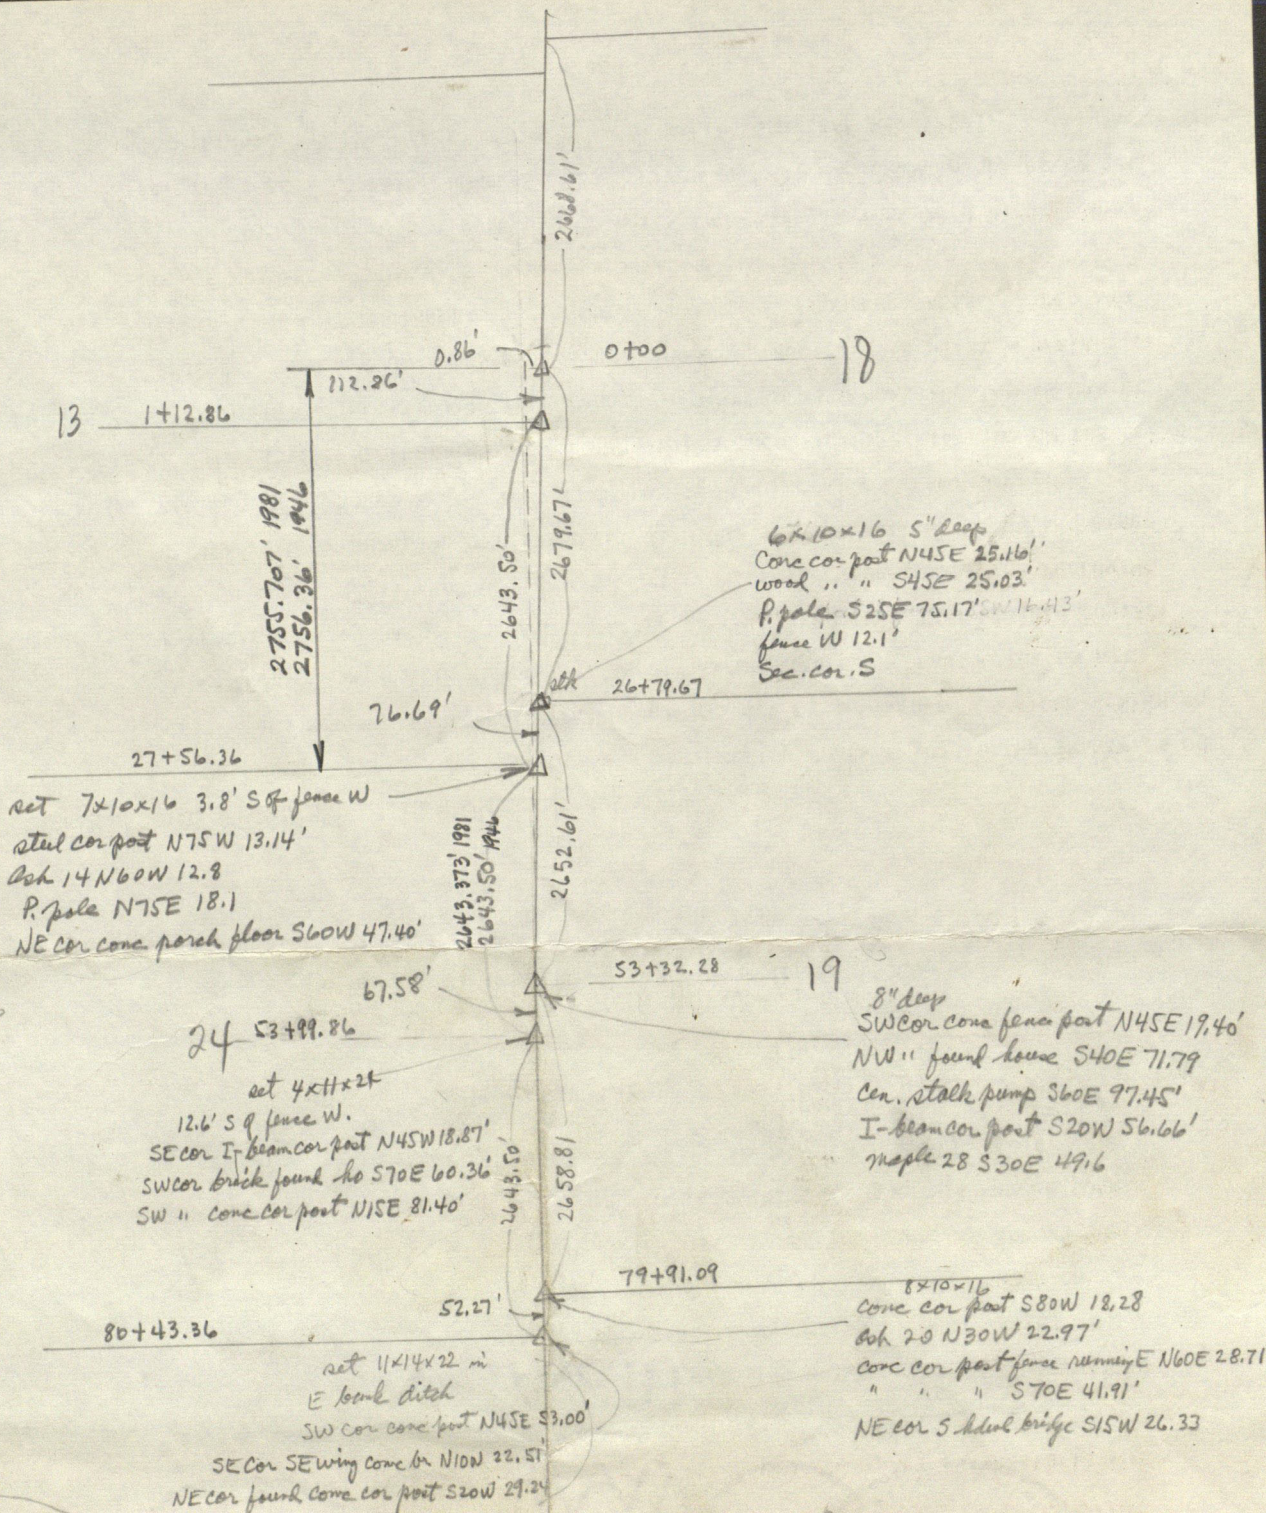 2668.61'
0.86'
0+00
18
112.86'
13
1+12.86
2755.707' 1981
2756.36' 1946
2643.50'
2679.67'
6x10x16 5" deep
Conc cor post N45E 25.16'
wood " " S45E 25.03'
P. pole S25E 75.17'
fence W 12.1'
Sec. cor. S
stk
26+79.67
76.69'
27+56.36
set 7x10x16 3.8' S of fence W
steel cor post N75W 13.14'
Ash 14 N60W 12.8
P. pole N75E 18.1
NE cor conc porch floor S60W 47.40'
2643.373' 1981
2643.50' 1946
2652.61'
53+32.28
19
67.58'
24
53+99.86
8" deep
SW cor conc fence post N45E 19.40'
NW " found house S40E 71.79
Cen. stalk pump S60E 97.45'
I-beam cor post S20W 56.66'
maple 28 S30E 49.6
set 4x11x24
12.6' S of fence W.
SE cor I-beam cor post N45W 18.87'
SW cor brick found ho S70E 60.36'
SW " conc cor post N15E 81.40'
2643.50'
2658.81
79+91.09
52.27'
80+43.36
8x10x16
conc cor post S80W 18.28
Ash 20 N30W 22.97'
conc cor post fence running E N60E 28.71
" " " S70E 41.91'
NE cor S bridge S15W 26.33
set 11x14x22 in
E bank ditch
SW cor conc post N45E 53.00'
SE cor SE wing conc br 22.51'
NE cor found conc cor post S20W 29.24